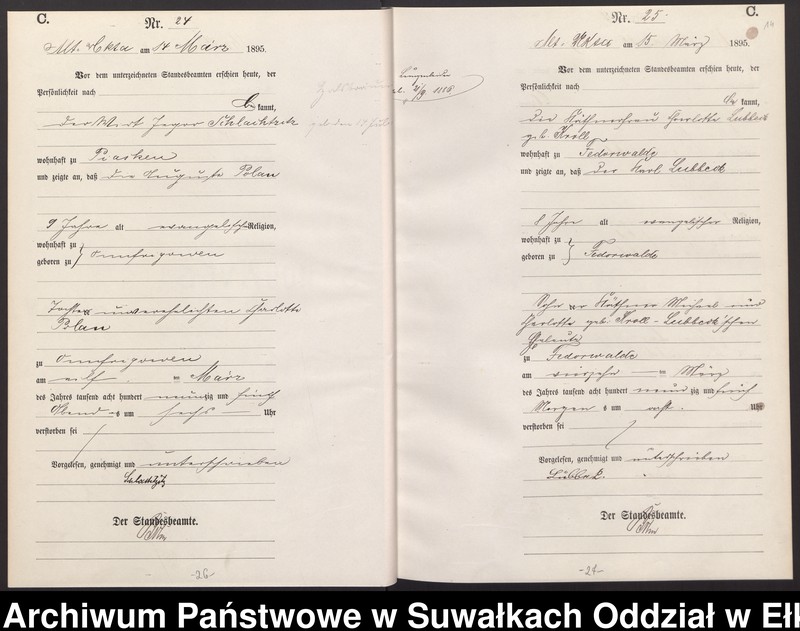 C.
Nr. 24
Mt. Uksa am 14 März 1895.
Vor dem unterzeichneten Standesbeamten erschien heute, der
Persönlichkeit nach
be kannt,
der Wirt Schlachtzitz
wohnhaft zu Piasken
und zeigte an, daß die Auguste Polan
9 Jahre alt evangelischer Religion,
wohnhaft zu
geboren zu
Tochter unverehelichten Charlotte
Polan
zu
am elf ten März
des Jahres tausend acht hundert neunzig und fünf
Abend s um sechs Uhr
verstorben sei
Vorgelesen, genehmigt und unterschrieben
Der Standesbeamte.
-26-
C.
Nr. 25.
Mt. Uksa am 15 März 1895.
Vor dem unterzeichneten Standesbeamten erschien heute, der
Persönlichkeit nach
be kannt,
die Käthnerfrau Charlotte Lubbeck
geb. Kroll
wohnhaft zu Fedorwalde
und zeigte an, daß der Karl Lubbeck
8 Jahre alt evangelischer Religion,
wohnhaft zu
geboren zu Fedorwalde
Sohn der Käthner Michael und
Charlotte geb. Kroll-Lubbeck'schen
Eheleute
zu Fedorwalde
am vierzehn ten März
des Jahres tausend acht hundert neun zig und fünf
Morgen s um Uhr
verstorben sei
Vorgelesen, genehmigt und unterschrieben
Lubbek.
Der Standesbeamte.
Archiwum Państwowe w Suwałkach Oddział w Eł